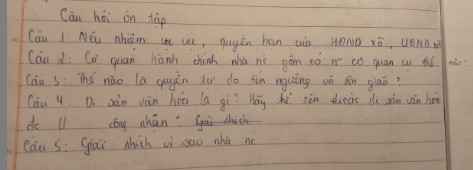 Câu hỏi ôn tập
Câu 1 Nêu nhiệm vụ, quyền hạn của HĐND xã, UBND xã
Câu 2: Cơ quan hành chính nhà nc gồm có nc cơ quan cụ thể nào?
Câu 3: Thế nào là quyền tự do tín ngưỡng và tôn giáo?
Câu 4 Di sản văn hóa là gì? Hãy kể tên được di sản văn hóa
đc công nhận?
Câu 5: Giải thích vì sao nhà nc